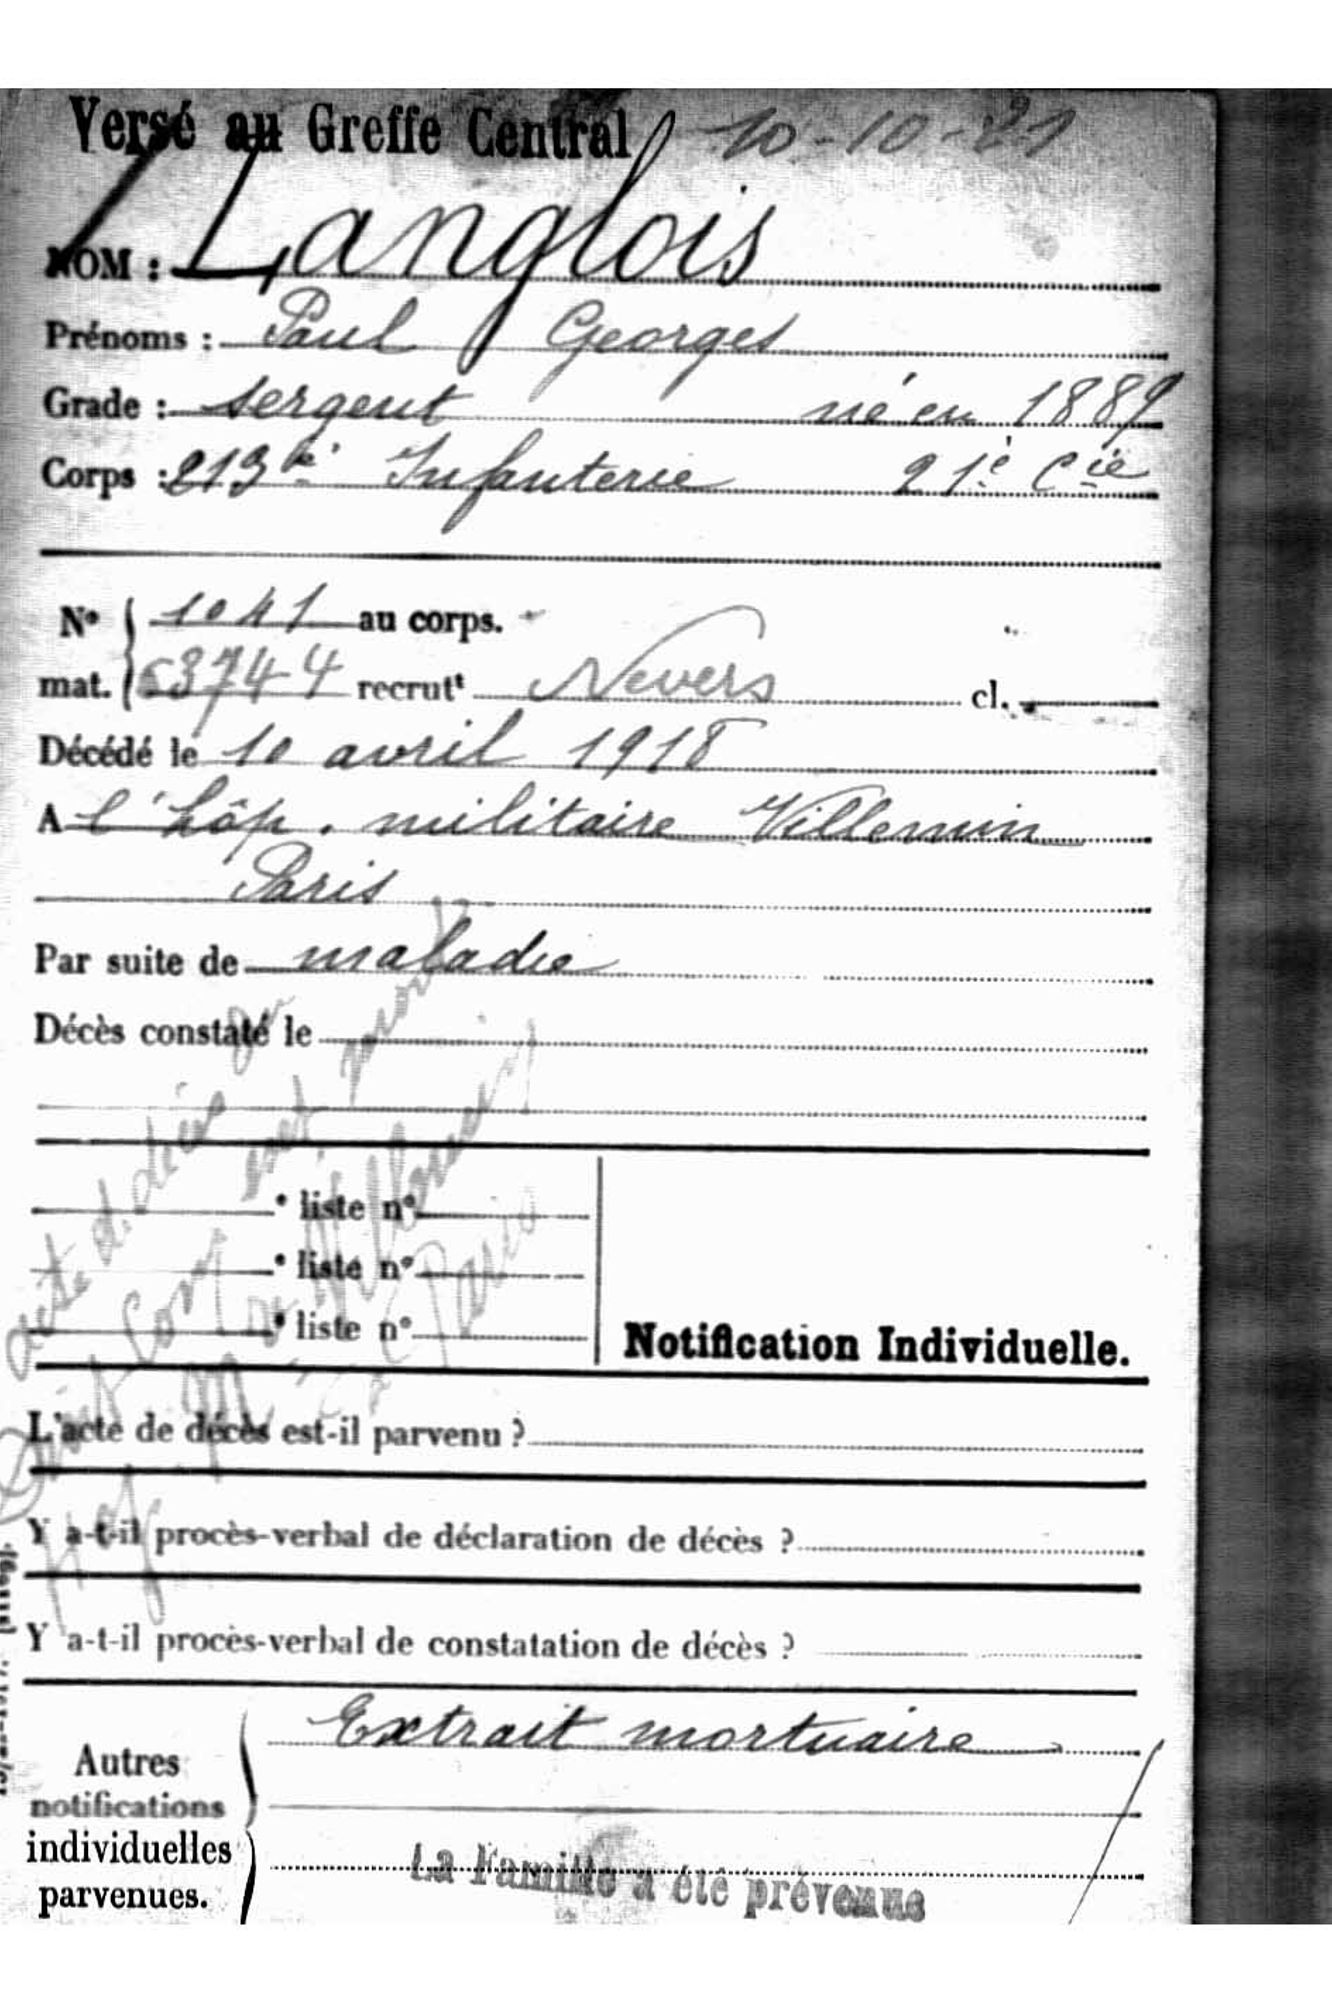 Versé au Greffe Central 10-10-21
NOM : Langlois
Prénoms : Paul Georges
Grade : sergent né en 1889
Corps : 213e Infanterie 21è Cie
No 1041 au corps.
mat. 53744 recrutt Nevers cl.
Décédé le 10 avril 1918
A l'hôp. militaire Villemin
Paris
Par suite de maladie
Décès constaté le
liste no
liste no
liste no
Notification Individuelle.
acte de décès
Paris
L'acte de décès est-il parvenu ?
Y a-t-il procès-verbal de déclaration de décès ?
Y a-t-il procès-verbal de constatation de décès ?
Extrait mortuaire
Autres
notifications
individuelles
parvenues.
La Famille a été prévenue